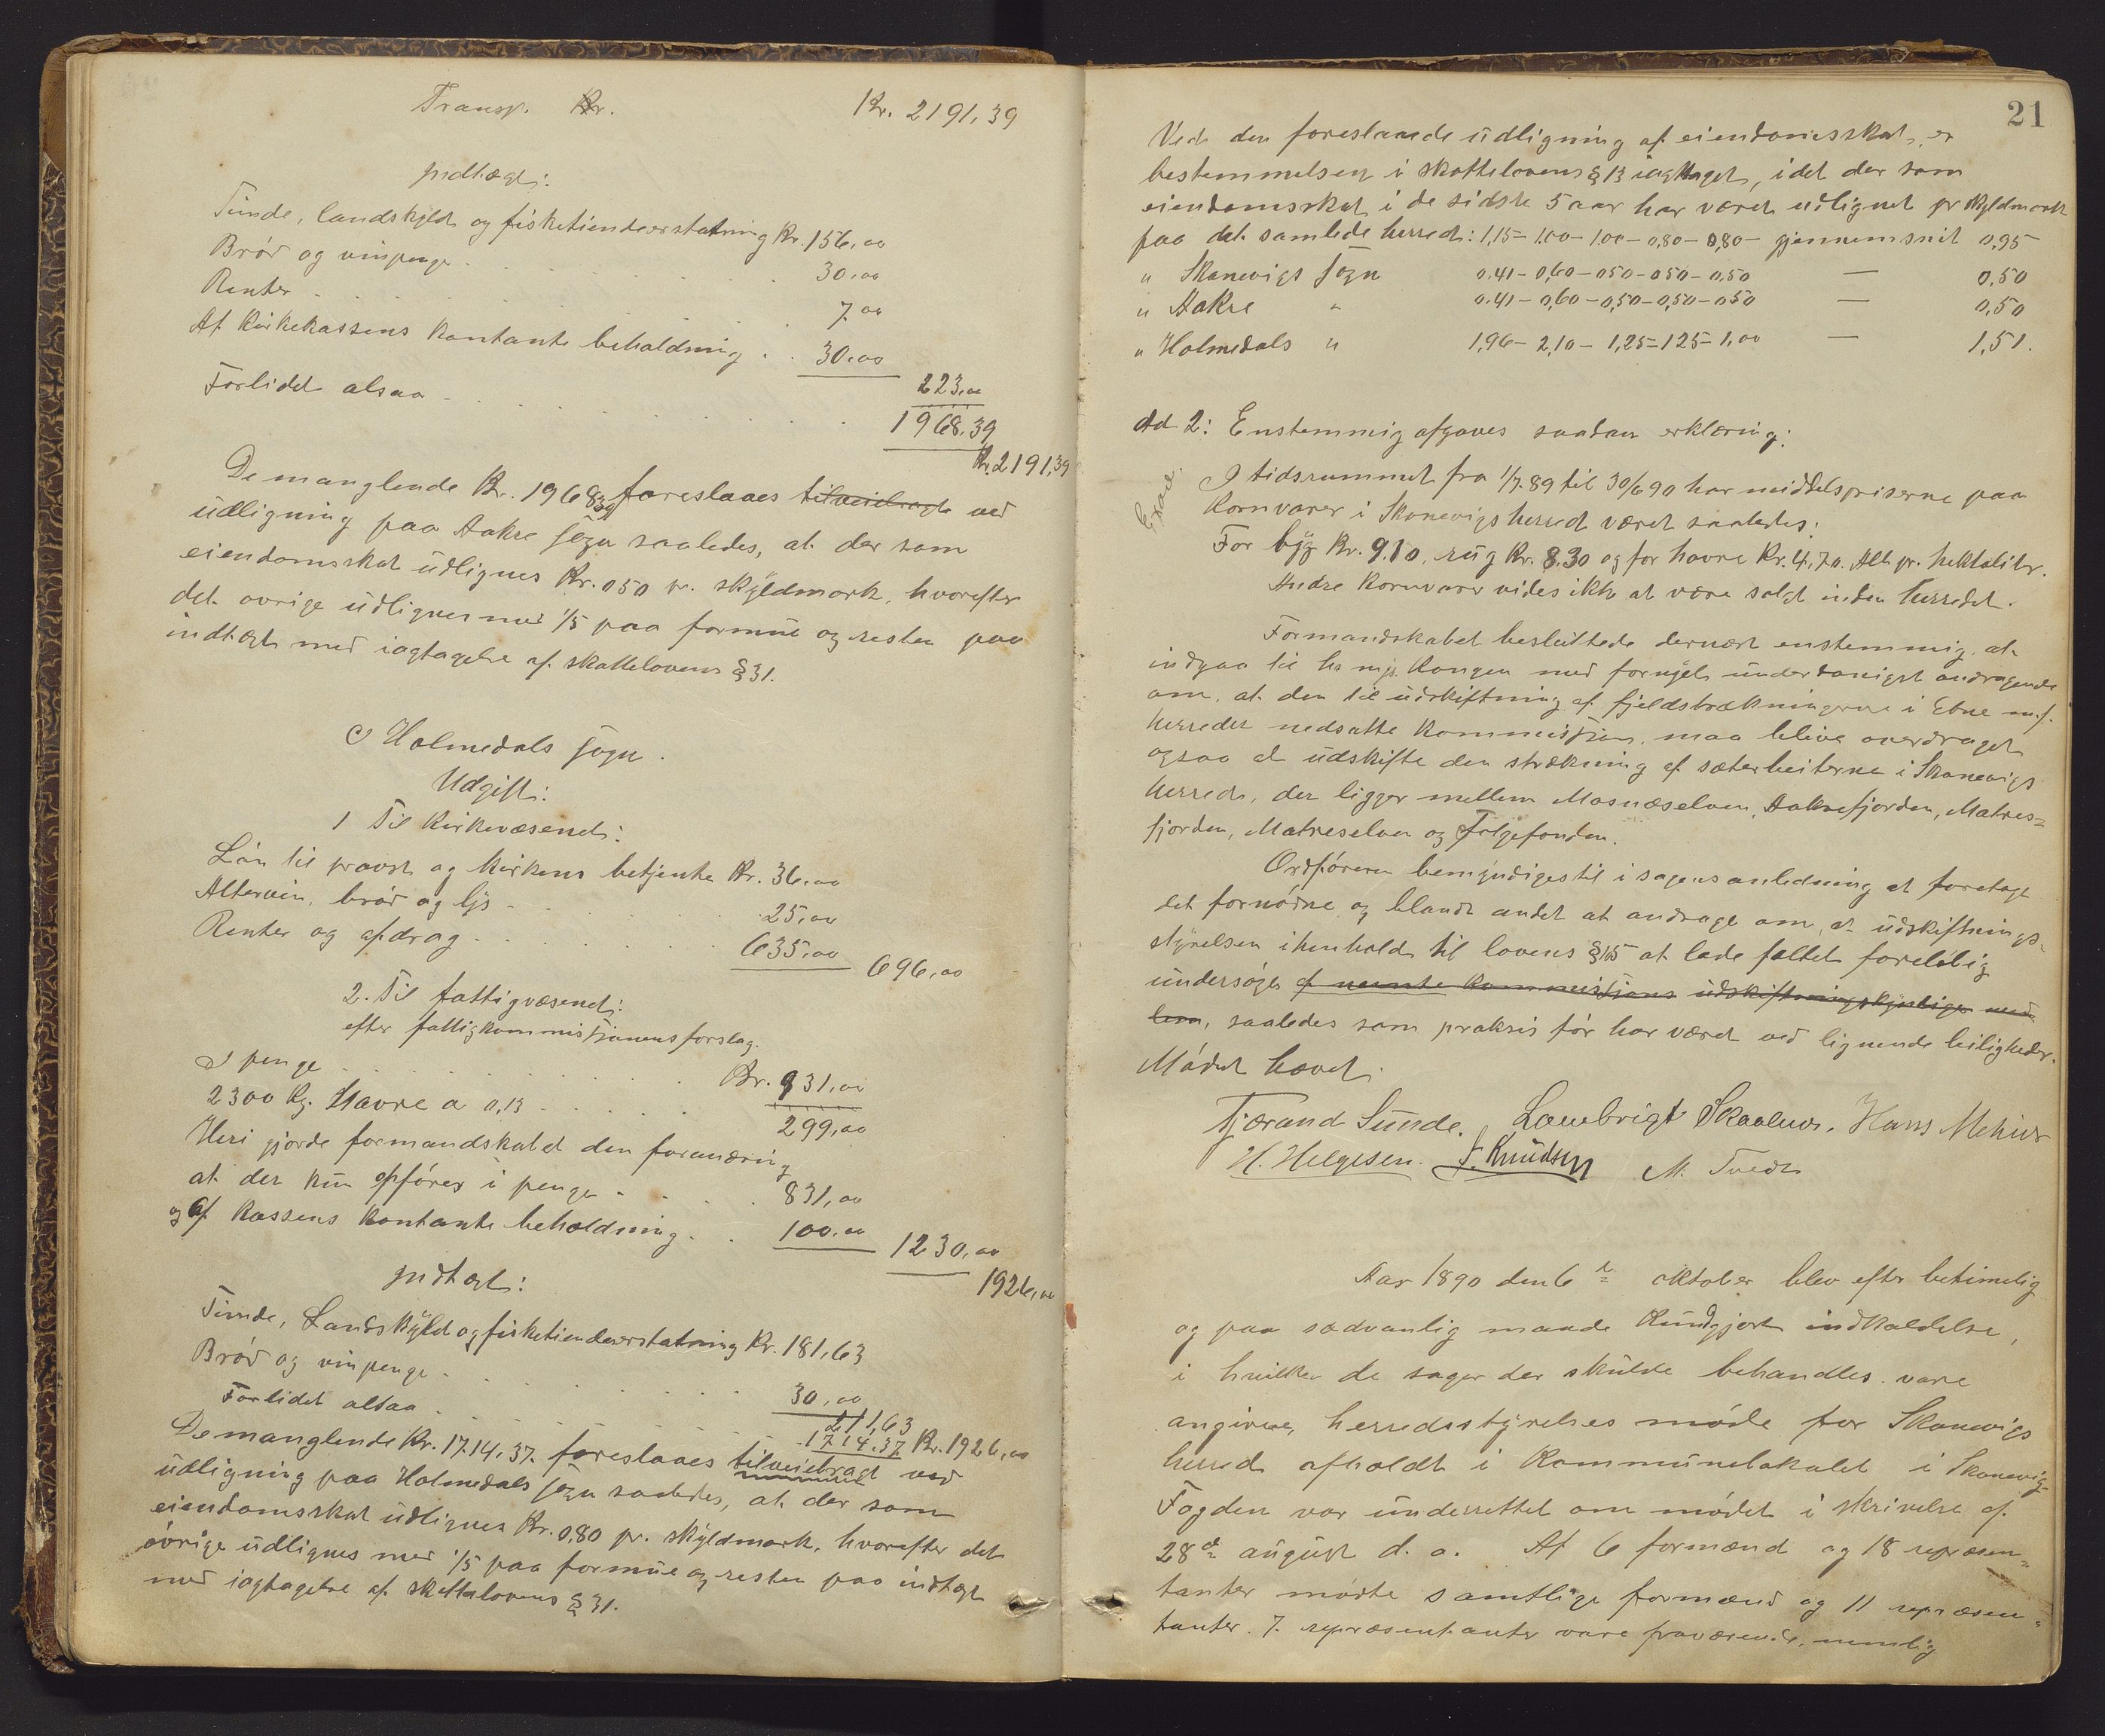 Transp. Kr. Kr. 2191,39
Indtægt:
Tiende, landskyld og fisketiendeerstatning Kr. 156,00
Brød og vinpenge 30,00
Renter 7,00
Af kirkekassens kontante beholdning 30,00
223,00
Forlidet alsaa 1968,39
Kr. 2191,39
De manglende Kr. 1968,39 foreslaaes tilveiebragte ved
udligning paa Aakre sogn saaledes, at der som
eiendomsskat udlignes Kr. 0,50 pr. skyldmark, hvorefter
det øvrige udlignes med 1/5 paa formue og resten paa
indtægt med iagtagelse af skattelovens § 31.
I Holmedals sogn.
Udgift:
1 Til kirkevæsenet:
Løn til provst og kirkens betjente Kr. 36,00
Altervin, brød og lys 25,00
Renter og afdrag 635,00 696,00
2. Til fattigvæsenet:
efter fattigkommissjonens forslag.
I penge Kr. 931,00
2300 Kg. Havre a 0,13 299,00
Heri gjorde formandskabet den forandring
at der kun opføres i penge 831,00
og af kassens kontante beholdning 100,00 1230,00
1926,00
Indtægt:
Tiende, Landskyld og fisketiendeerstatning Kr. 181,63
Brød og vinpenge 30,00
211,63
Forlidet altsaa 1714,37 Kr. 1926,00
De manglende Kr. 1714,37. foreslaaes tilveiebragt ved
udligning paa Holmedals sogn saaledes, at der som
eiendomsskat udlignes Kr. 0,80 pr. skyldmark, hvorefter det
øvrige udlignes med 1/5 paa formue og resten paa indtægt
med iagtagelse af skattelovens § 31.
21
Ved den foreslaaede udligning af eiendomsskat, er
bestemmelsen i skattelovens § 13 iagttaget, idet der som
eiendomsskat i de sidste 5 aar har været udlignet pr skyldmark
paa det samlede herred: 1,15 - 1,00 - 1,00 - 0,80 - 0,80 - gjennemsnit 0,95
" Skanevigs sogn 0,41 - 0,60 - 0,50 - 0,50 - 0,50 — 0,50
" Aakre " 0,41 - 0,60 - 0,50 - 0,50 - 0,50 — 0,50
" Holmedals " 1,96 - 2,10 - 1,25 - 1,25 - 1,00 — 1,51.
Ad 2: Enstemmig afgaves saadan erklæring:
I tidsrummet fra 1/7 89 til 30/6 90 har middelspriserne paa
Kornvarer i Skanevigs herred været saaledes:
For byg Kr. 9.10, rug Kr. 8.30 og for havre Kr. 4,70. Alt pr. hektoliter.
Andre kornvarer vides ikke at være solgt inden herredet.
Formandskabet besluttede dernæst enstemmig at
indgaa til hs maj. Kongen med fornyet underdanigst andragende
om, at den til udskiftning af fjeldstrækningerne i Etne m.f.
herreder nedsatte kommissjon, maa blive overdraget
ogsaa at udskifte den strækning af sæterbeiterne i Skanevigs
herred, der ligger mellem Mosnæselven, Aakrefjorden, Matres-
fjorden, Matreselven og Folgefonden.
Ordføreren bemyndiges til i sagens anledning at foretage
det fornødne og blandt andet at andrage om, at udskiftnings-
styrelsen i henhold til lovens § 105 at lade feltet foreløbig
undersøges af nevnte kommissjons udskiftningskyndige med
lem, saaledes som praksis før har været ved lignende leiligheder.
Mødet hævet.
Tjærand Sunde. Lambrigt Skaalnes. Hans Mehus
H. Helgesen. S. Knudsen M. Tvedt
Aar 1890 den 6te oktober blev efter betimelig
og paa sædvanlig maade kundgjort indkaldelse,
i hvilken de sager der skulde behandles vare
angivne, herredsstyrelses møde for Skanevigs
herred afholdt i kommunelokalet i Skanevig
Fogden var underrettet om mødet i skrivelse af
28de august d. a. Af 6 formænd og 18 repræsen-
tanter mødte samtlige formænd og 11 repræsen-
tanter. 7 repræsentanter vare fraværende, nemlig